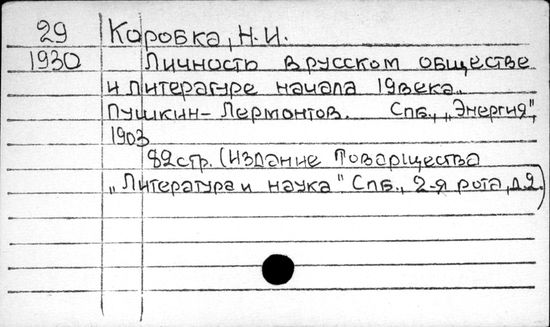 29 Коробка, Н.И.
1930 Личность в русском обществе
и литературе начала 19 века.
Пушкин-Лермонтов. Спб., „Энергия",
1903
82 стр. (Издание Товарищества
„Литература и наука" Спб., 2-я рота, д 2.)